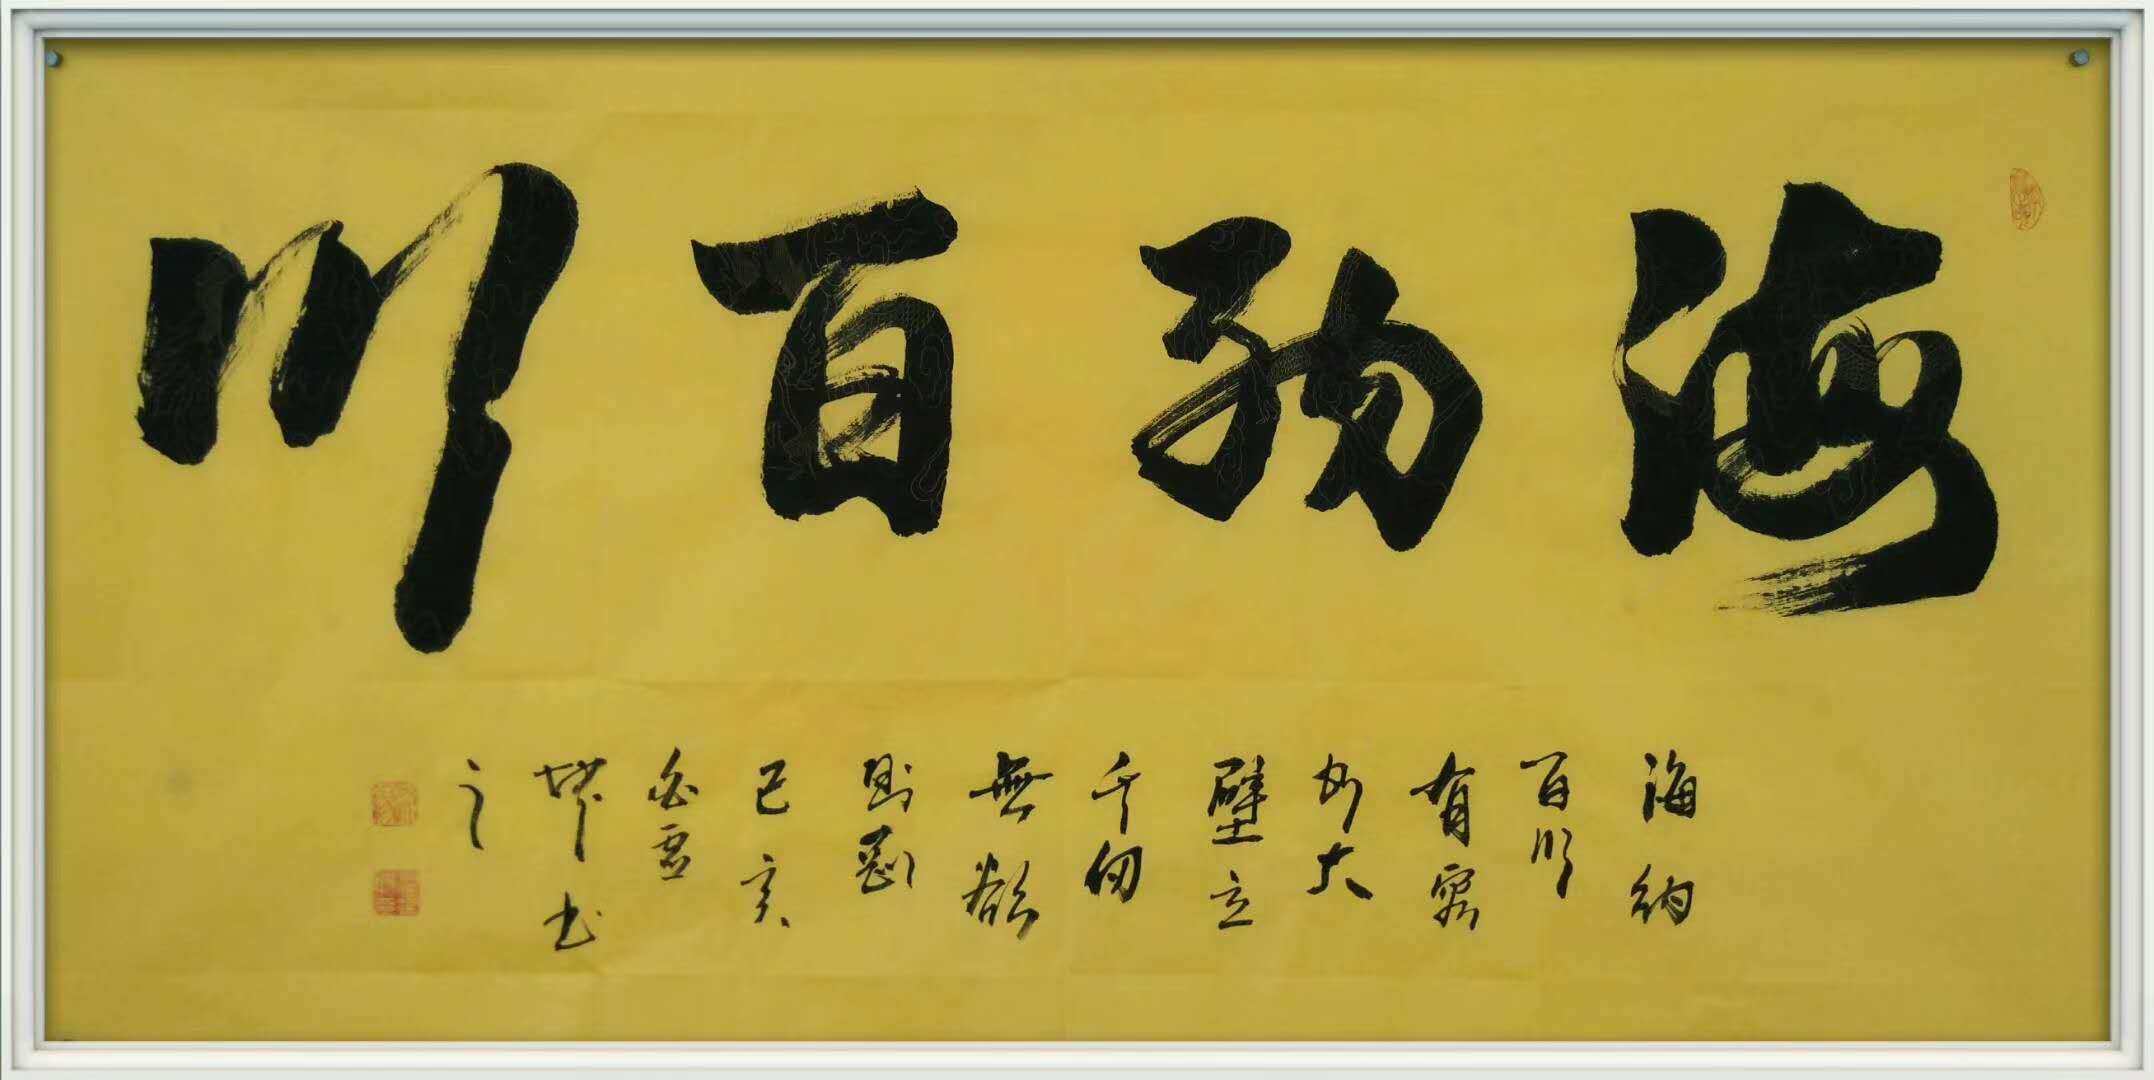 海納百川
海納
百川
有容
乃大
壁立
千仞
無欲
則剛
己亥
书